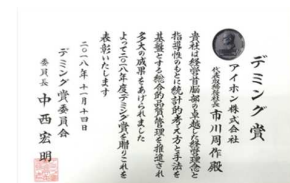 デミング賞
アイホン株式会社
代表取締役社長 市川周作殿
貴社は経営首脳部の卓越した経営理念と
指導性のもとに統計的考え方と手法を
基盤とする総合的品質管理を推進され
多大の成果をあげられました
よって二〇一八年度デミング賞を贈りこれを
表彰いたします
二〇一八年十一月十四日
デミング賞委員会
委員長 中西宏明